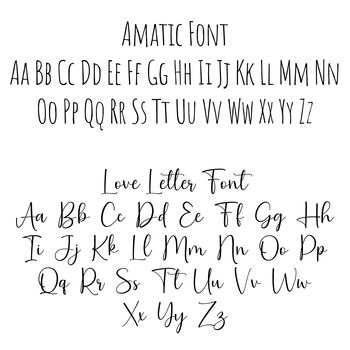 Amatic Font
Aa Bb Cc Dd Ee Ff Gg Hh Ii Jj Kk Ll Mm Nn
Oo Pp Qq Rr Ss Tt Uu Vv Ww Xx Yy Zz
Love Letter Font
Aa Bb Cc Dd Ee Ff Gg Hh
Ii Jj Kk Ll Mm Nn Oo Pp
Qq Rr Ss Tt Uu Vv Ww
Xx Yy Zz